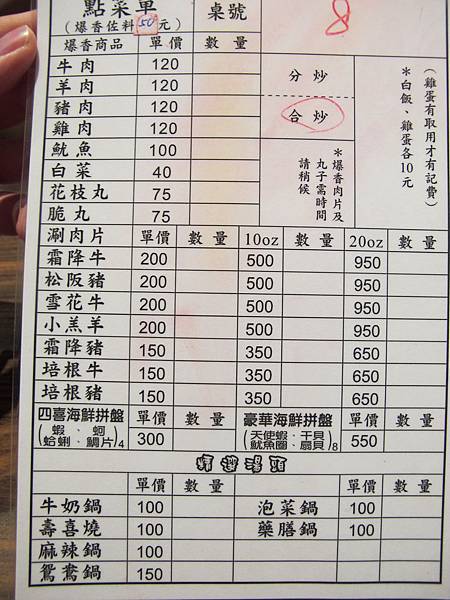 點菜單 桌號 8
(爆香佐料50元)
爆香商品 單價 數量
牛肉 120
羊肉 120
豬肉 120
雞肉 120
魷魚 100
白菜 40
花枝丸 75
脆丸 75
分炒
合炒
*爆香肉片及
丸子需時間
請稍候
(雞蛋有取用才有記費)
*白飯、雞蛋各10元
涮肉片 單價 數量 10oz 數量 20oz 數量
霜降牛 200 500 950
松阪豬 200 500 950
雪花牛 200 500 950
小羔羊 200 500 950
霜降豬 150 350 650
培根牛 150 350 650
培根豬 150 350 650
四喜海鮮拼盤 單價 數量 豪華海鮮拼盤 單價 數量
(蝦、蚵 300 (天使蝦、干貝 550
蛤蜊、鯛片)4 魷魚圈、扇貝)8
精選湯頭
單價 數量 單價 數量
牛奶鍋 100 泡菜鍋 100
壽喜燒 100 藥膳鍋 100
麻辣鍋 100
鴛鴦鍋 150